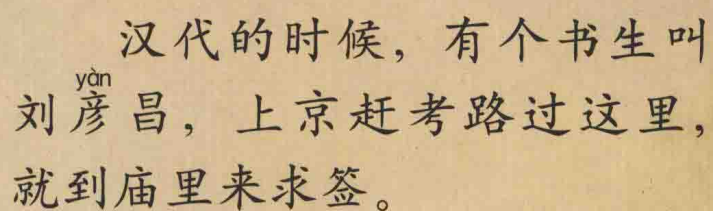 汉代的时候，有个书生叫
yàn
刘彦昌，上京赶考路过这里，
就到庙里来求签。